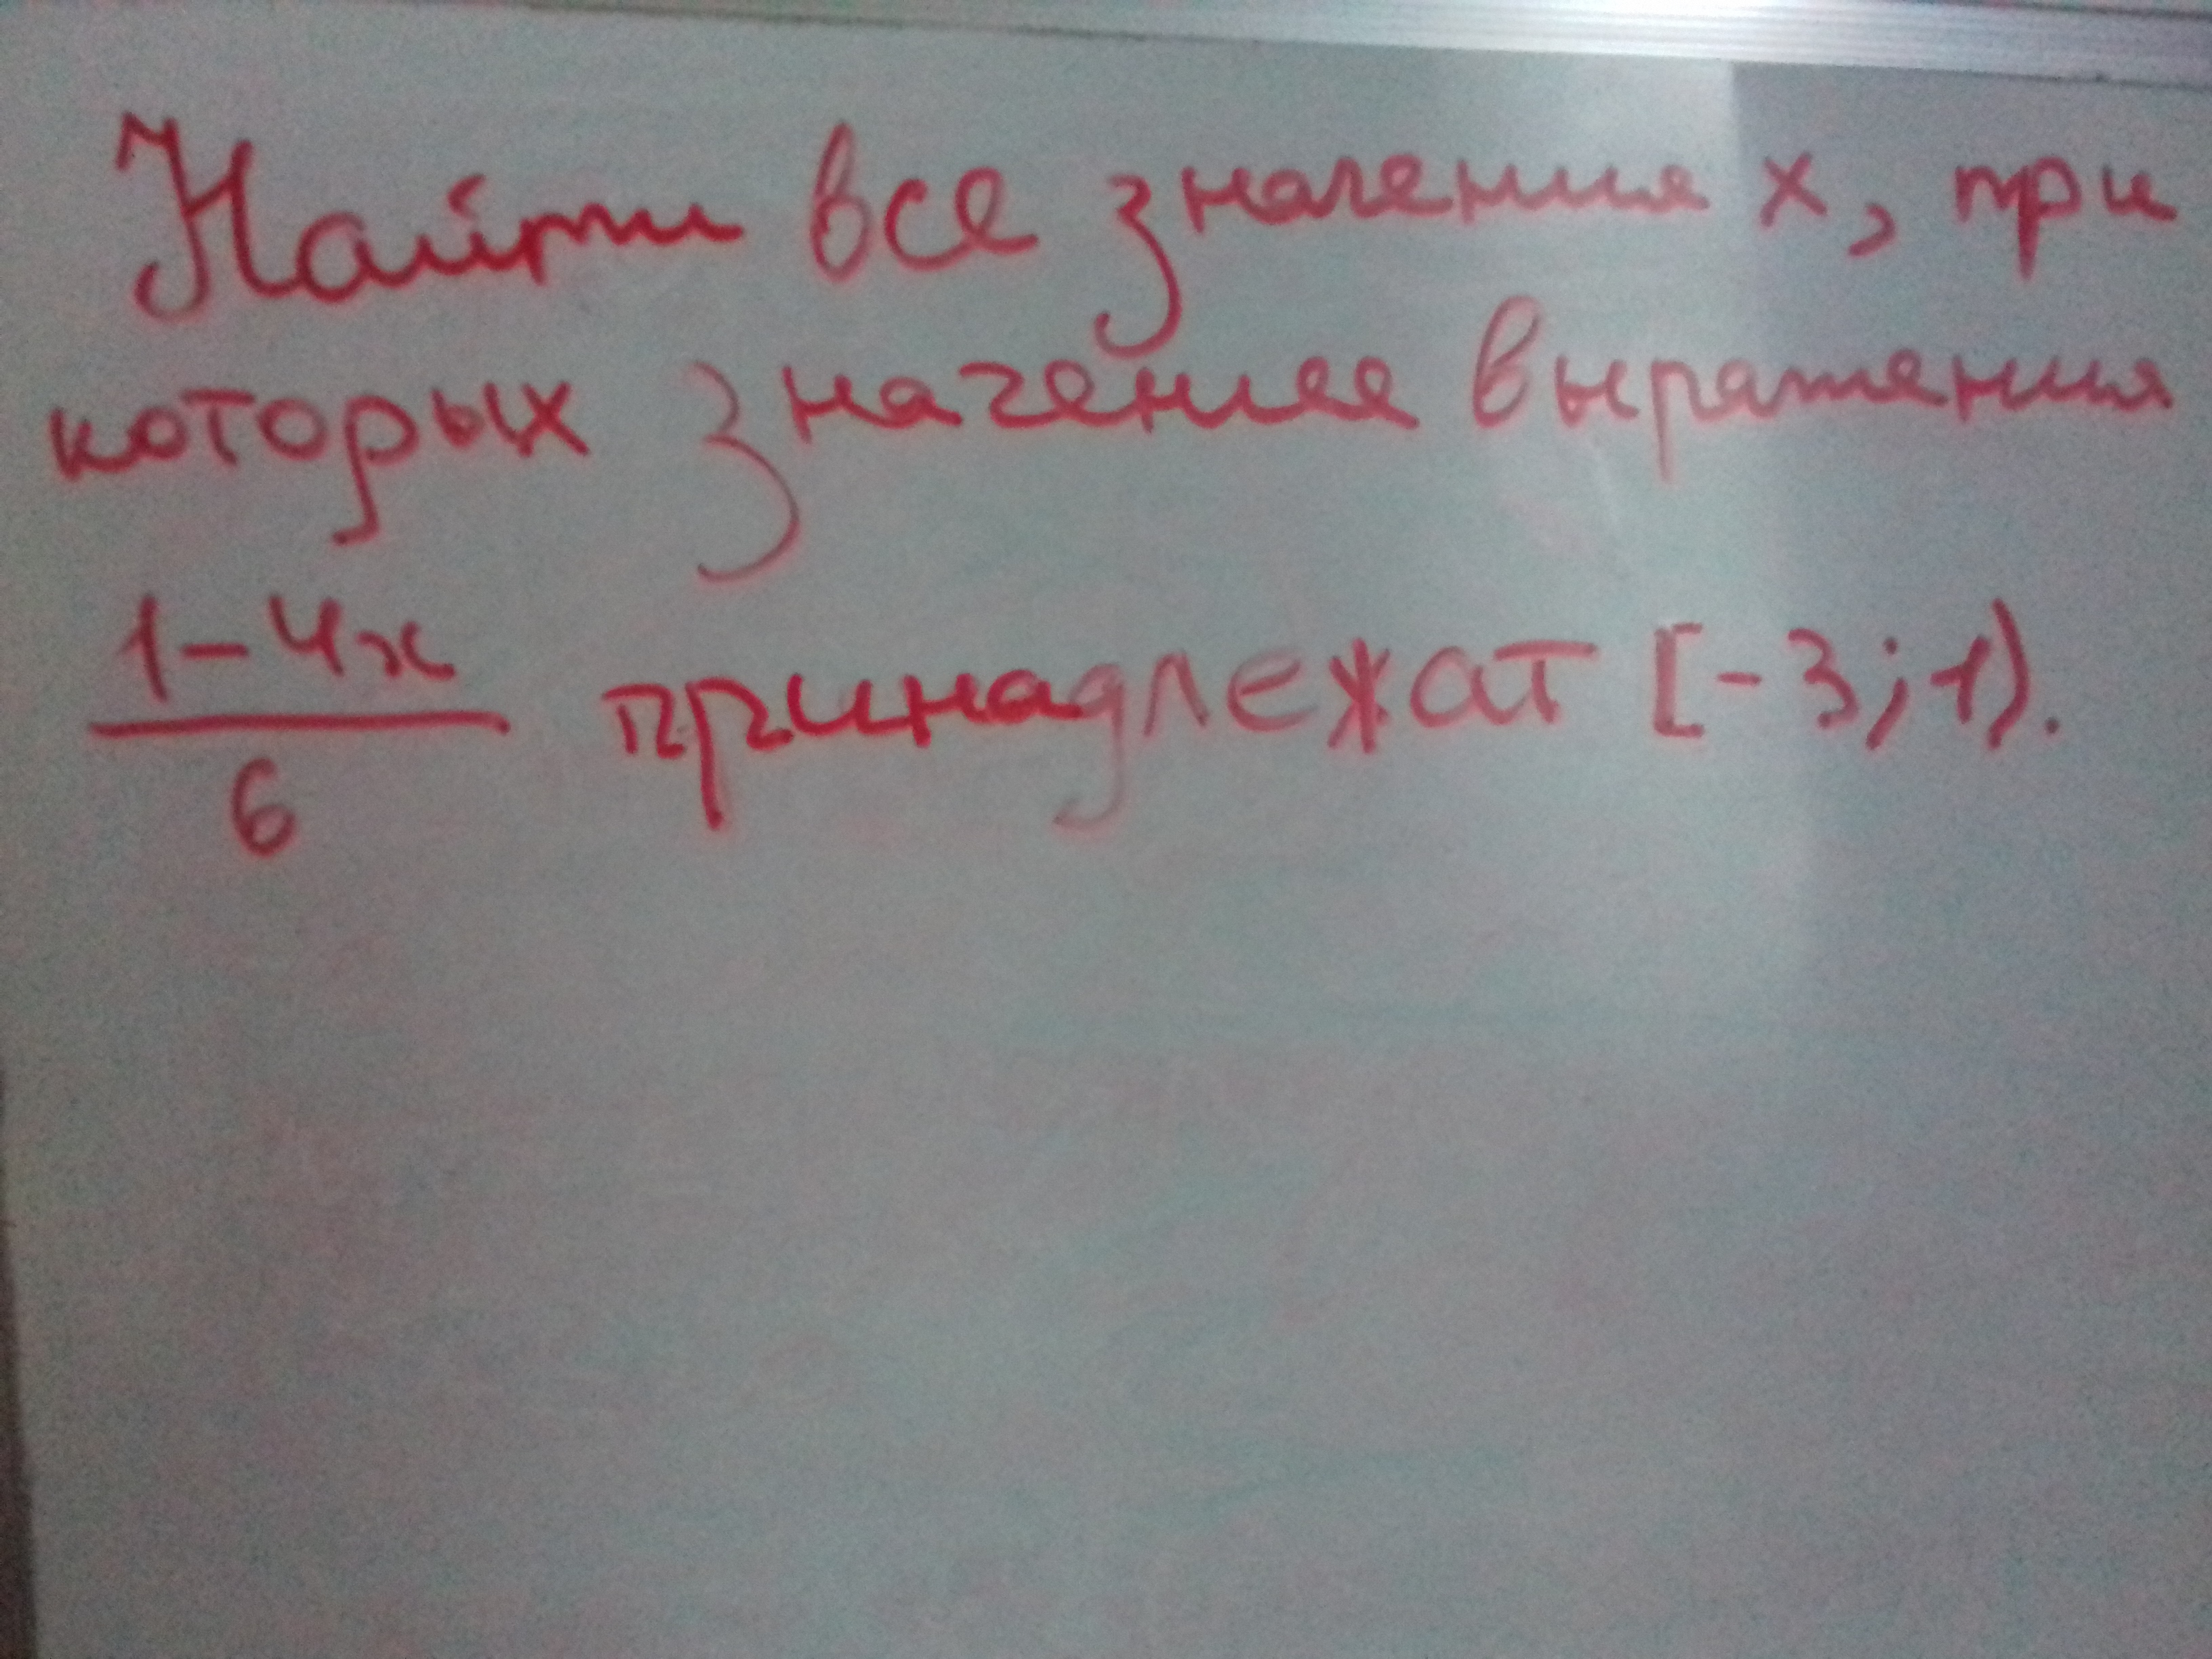 Найти все значения x, при
которых значение выражения
1-4x/6 принадлежат [-3;1).